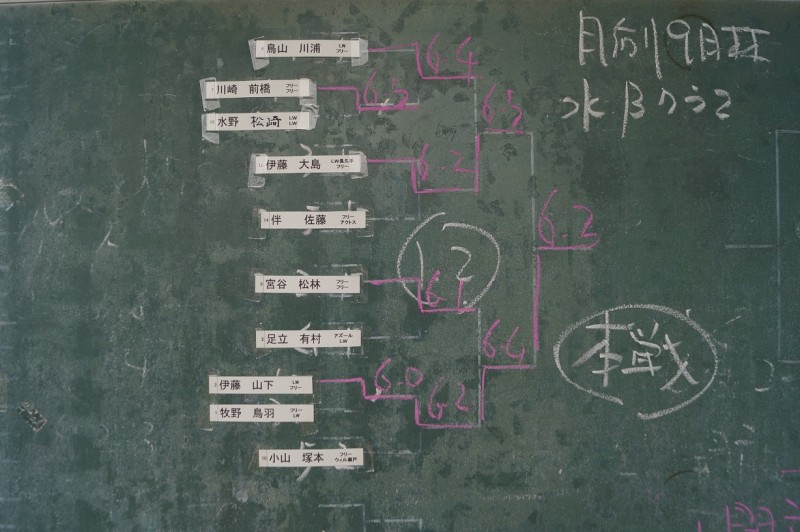 月例9月杯
水Bクラス
鳥山 川浦 LW フリー
6-4
川崎 前橋 フリー フリー
6-5
6-3
水野 松崎 LW LW
伊藤 大島 フリー
6-2
伴 佐藤 フリー アクトス
6-3
12
宮谷 松林 フリー フリー
6-1
足立 有村 アズール LW
6-4
本戦
伊藤 山下 LW フリー
6-0
6-2
牧野 鳥羽 フリー LW
小山 塚本 フリー ウィル瀬戸